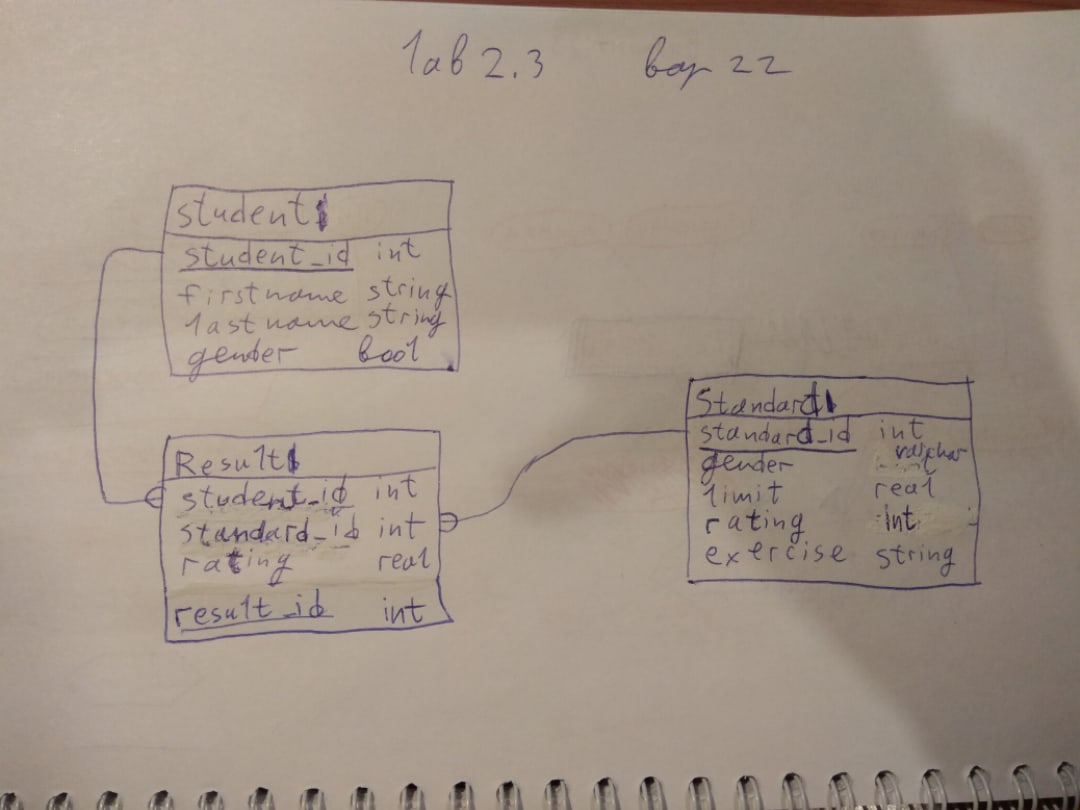 lab 2.3 вар 22
student
student_id int
firstname string
lastname string
gender bool
Result
student_id int
standard_id int
rating real
result_id int
Standard
standard_id int
gender varchar
limit real
rating int
exercise string